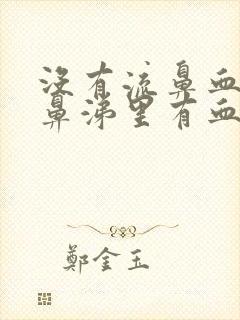 没有流鼻血
鼻涕里有血
鄭金玉